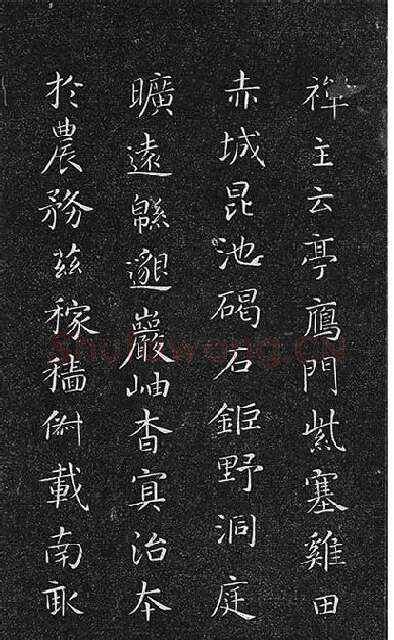 禪主云亭鴈門紫塞雞田
赤城昆池碣石鉅野洞庭
曠遠緜邈巖岫杳冥治夲
於農務茲稼穡俶載南畝